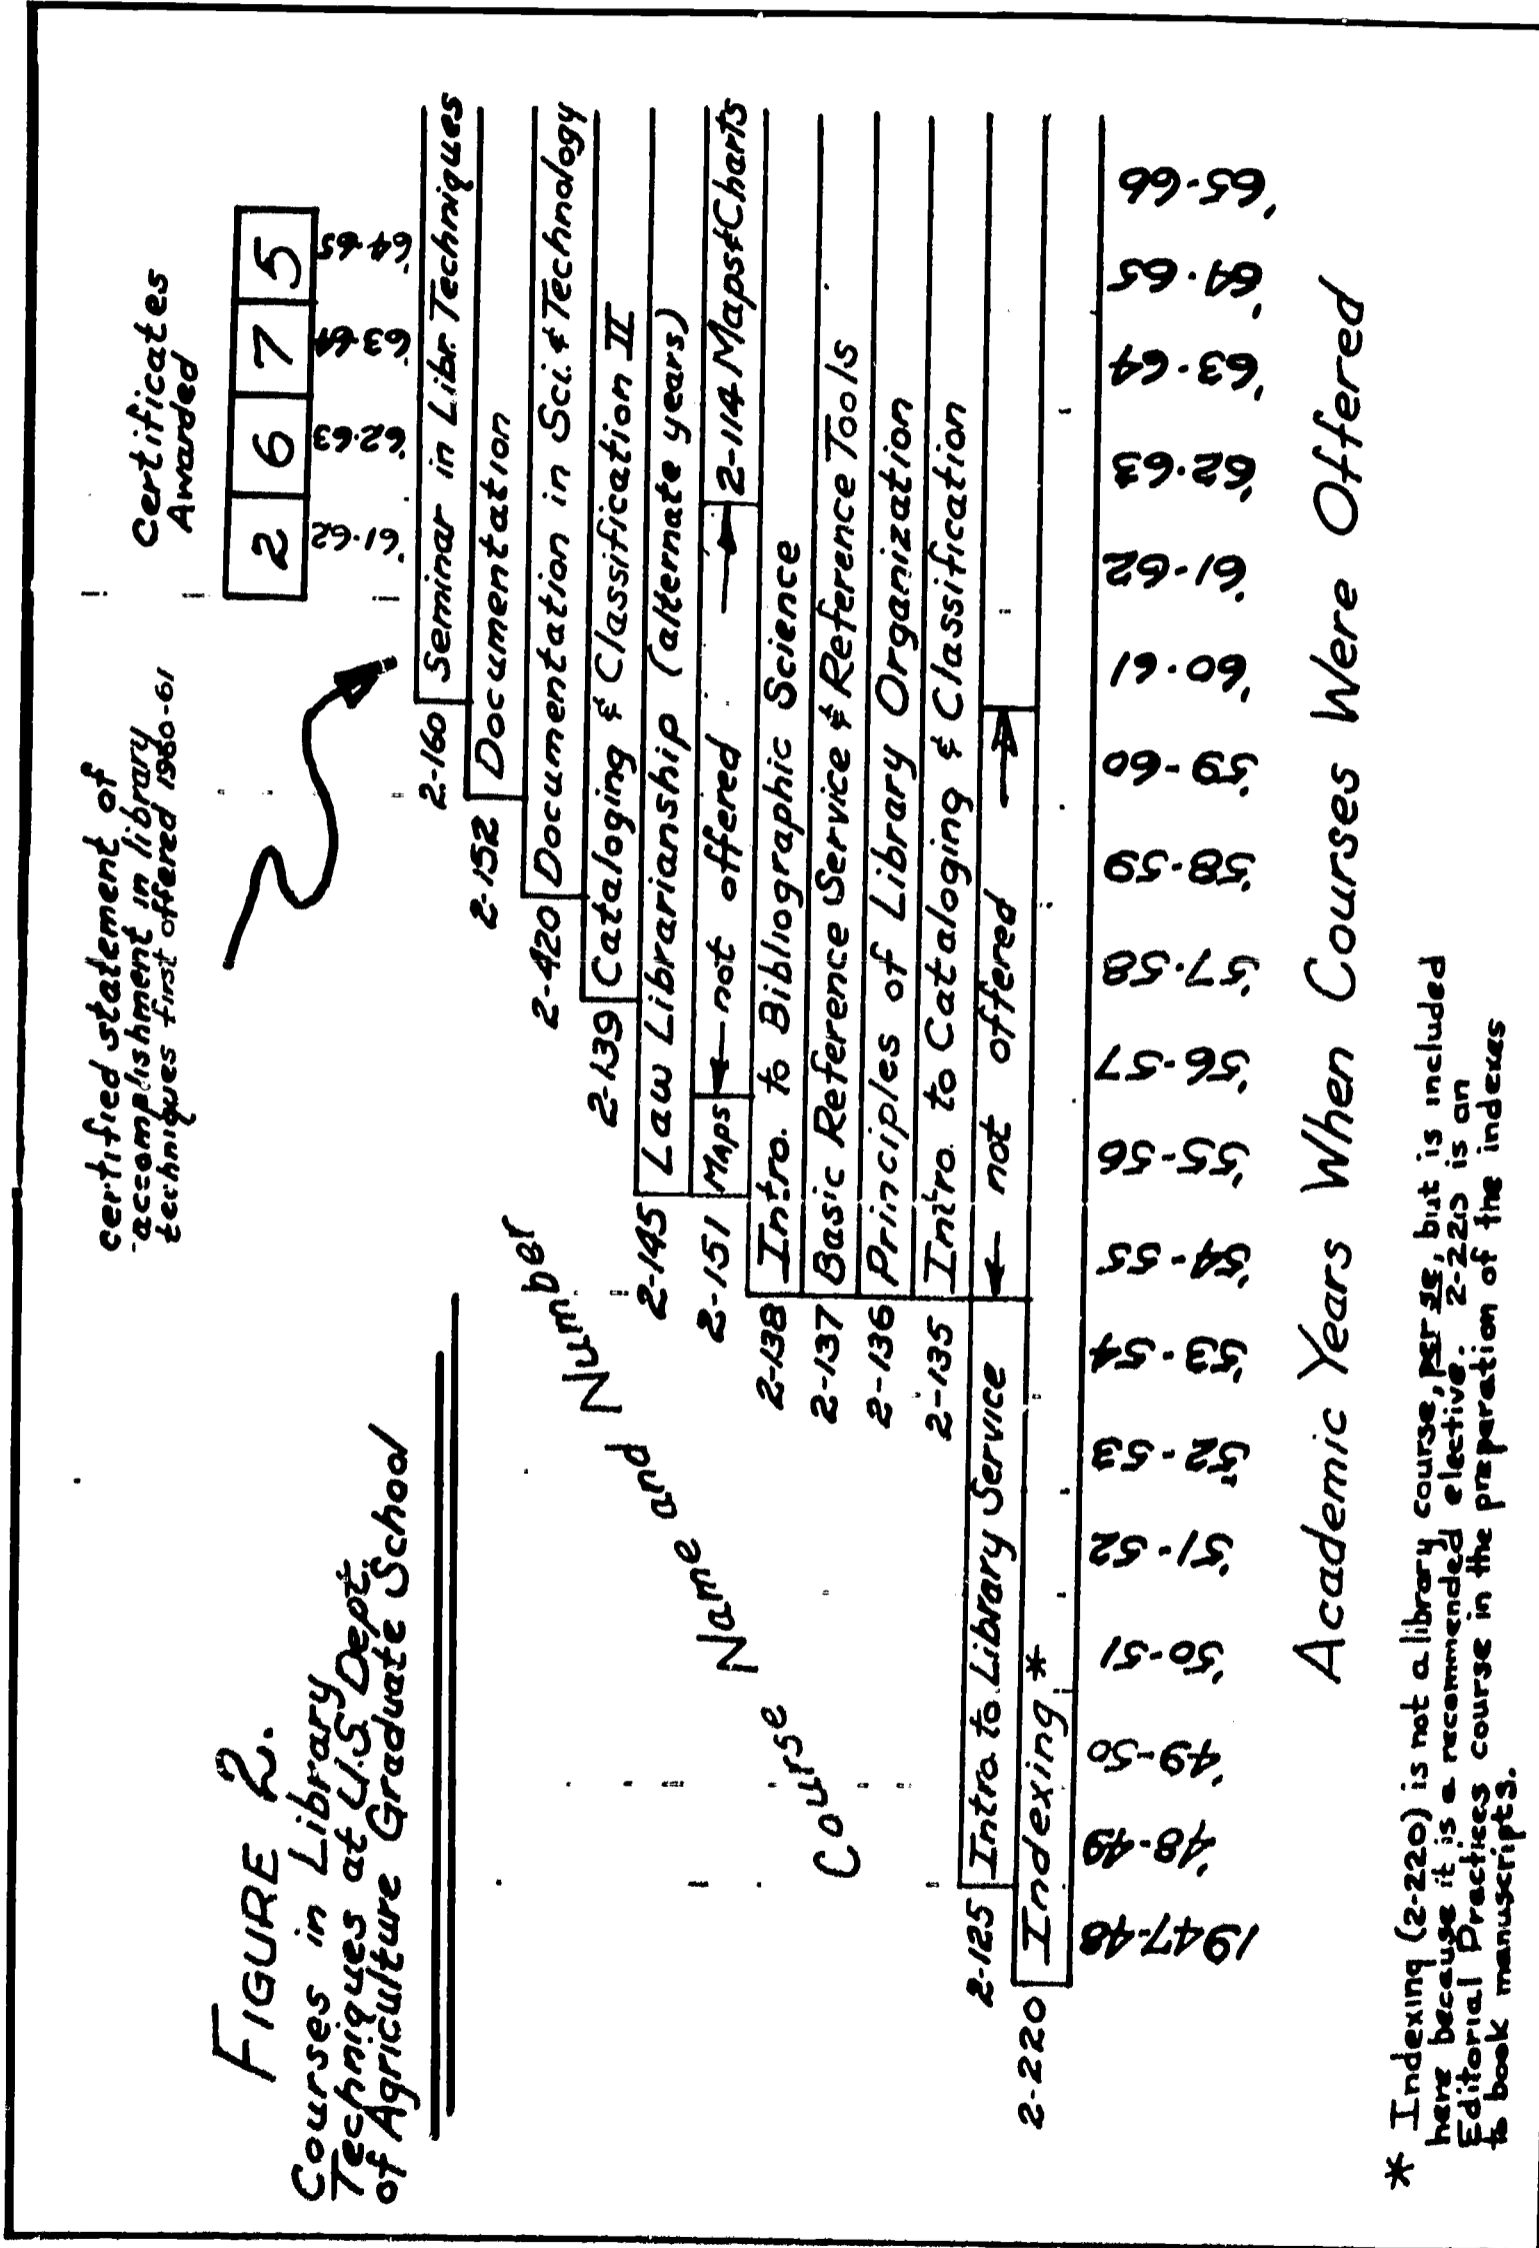 FIGURE 2.
Courses in Library
Techniques at U.S. Dept.
of Agriculture Graduate School
certified statement of
accomplishment in library
techniques first offered 1960-61
Certificates
Awarded
2 6 7 5
'61-62 '62-63 '63-64 '64-65
Course Name and Number
2-160 Seminar in Libr. Techniques
2-152 Documentation
2-420 Documentation in Sci. & Technology
2-139 Cataloging & Classification II
2-145 Law Librarianship (alternate years)
2-151 MAPS ← not offered → 2-114 Maps & Charts
2-138 Intro. to Bibliographic Science
2-137 Basic Reference Service & Reference Tools
2-136 Principles of Library Organization
2-135 Intro. to Cataloging & Classification
2-125 Intro to Library Service ← not offered →
2-220 Indexing *
1947-48 '48-49 '49-50 '50-51 '51-52 '52-53 '53-54 '54-55 '55-56 '56-57 '57-58 '58-59 '59-60 '60-61 '61-62 '62-63 '63-64 '64-65 '65-66
Academic Years When Courses Were Offered
* Indexing (2-220) is not a library course, per se, but is included
here because it is a recommended elective. 2-220 is an
Editorial Practices course in the preparation of the indexes
to book manuscripts.